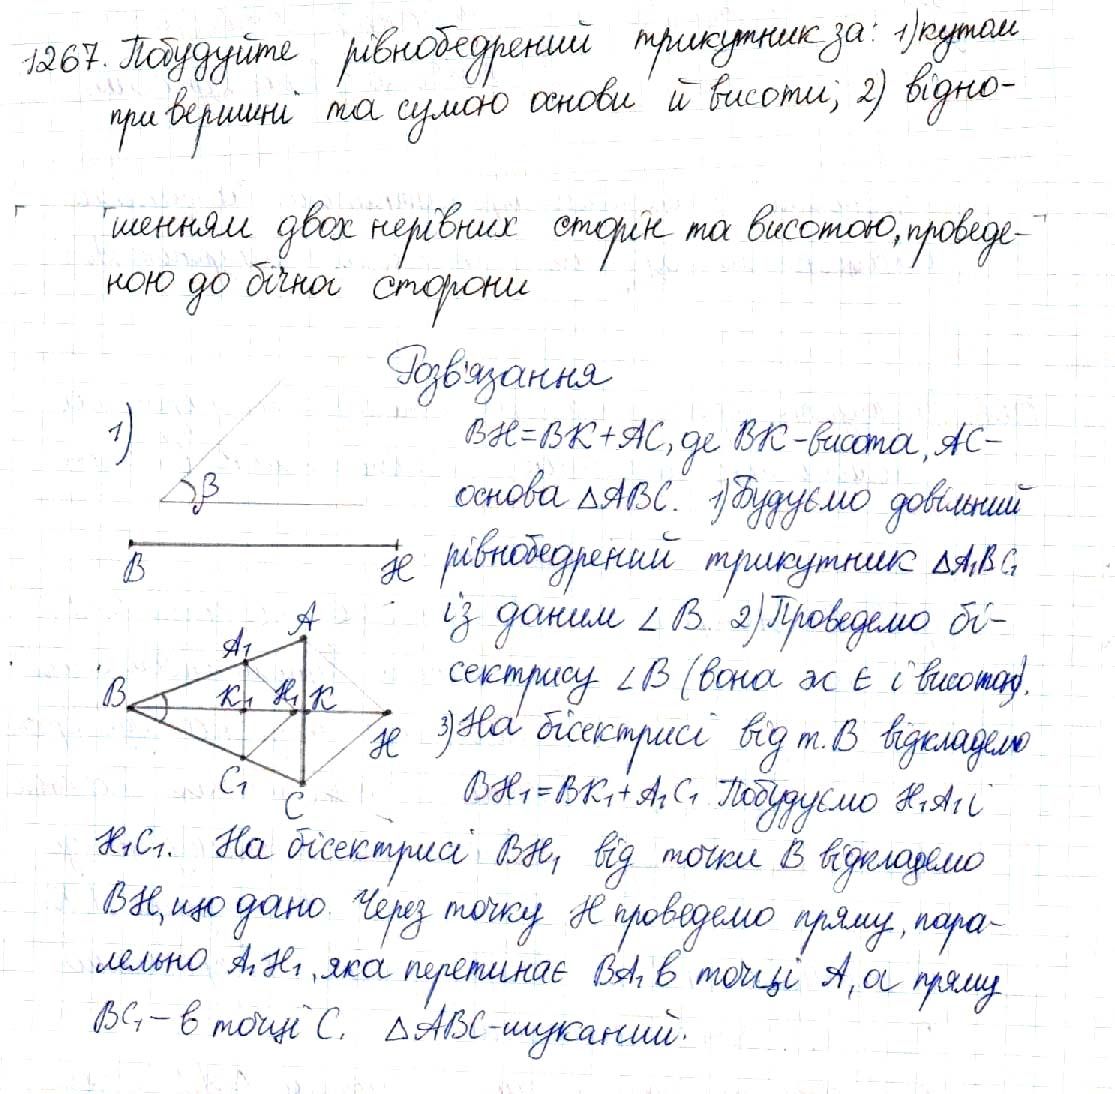 1267. Побудуйте рівнобедрений трикутник за: 1) кутом
при вершині та сумою основи й висоти; 2) відно-
шенням двох нерівних сторін та висотою, проведе-
ною до бічної сторони
Розв'язання
1)
β
B H
BH=BK+AC, де BK-висота, AC-
основа △ABC. 1) Будуємо довільний
рівнобедрений трикутник △A₁BC₁
із даним ∠B. 2) Проведемо бі-
сектрису ∠B (вона ж є і висотою).
3) На бісектрисі від т. B відкладемо
BH₁=BK₁+A₁C₁ Побудуємо H₁A₁ і
A
A₁
B K₁ H₁ K H
C₁
C
H₁C₁. На бісектрисі BH₁ від точки B відкладемо
BH, що дано. Через точку H проведемо пряму, пара-
лельно A₁H₁, яка перетинає BA₁ в точці A, а пряму
BC₁ - в точці C. △ABC-шуканий.